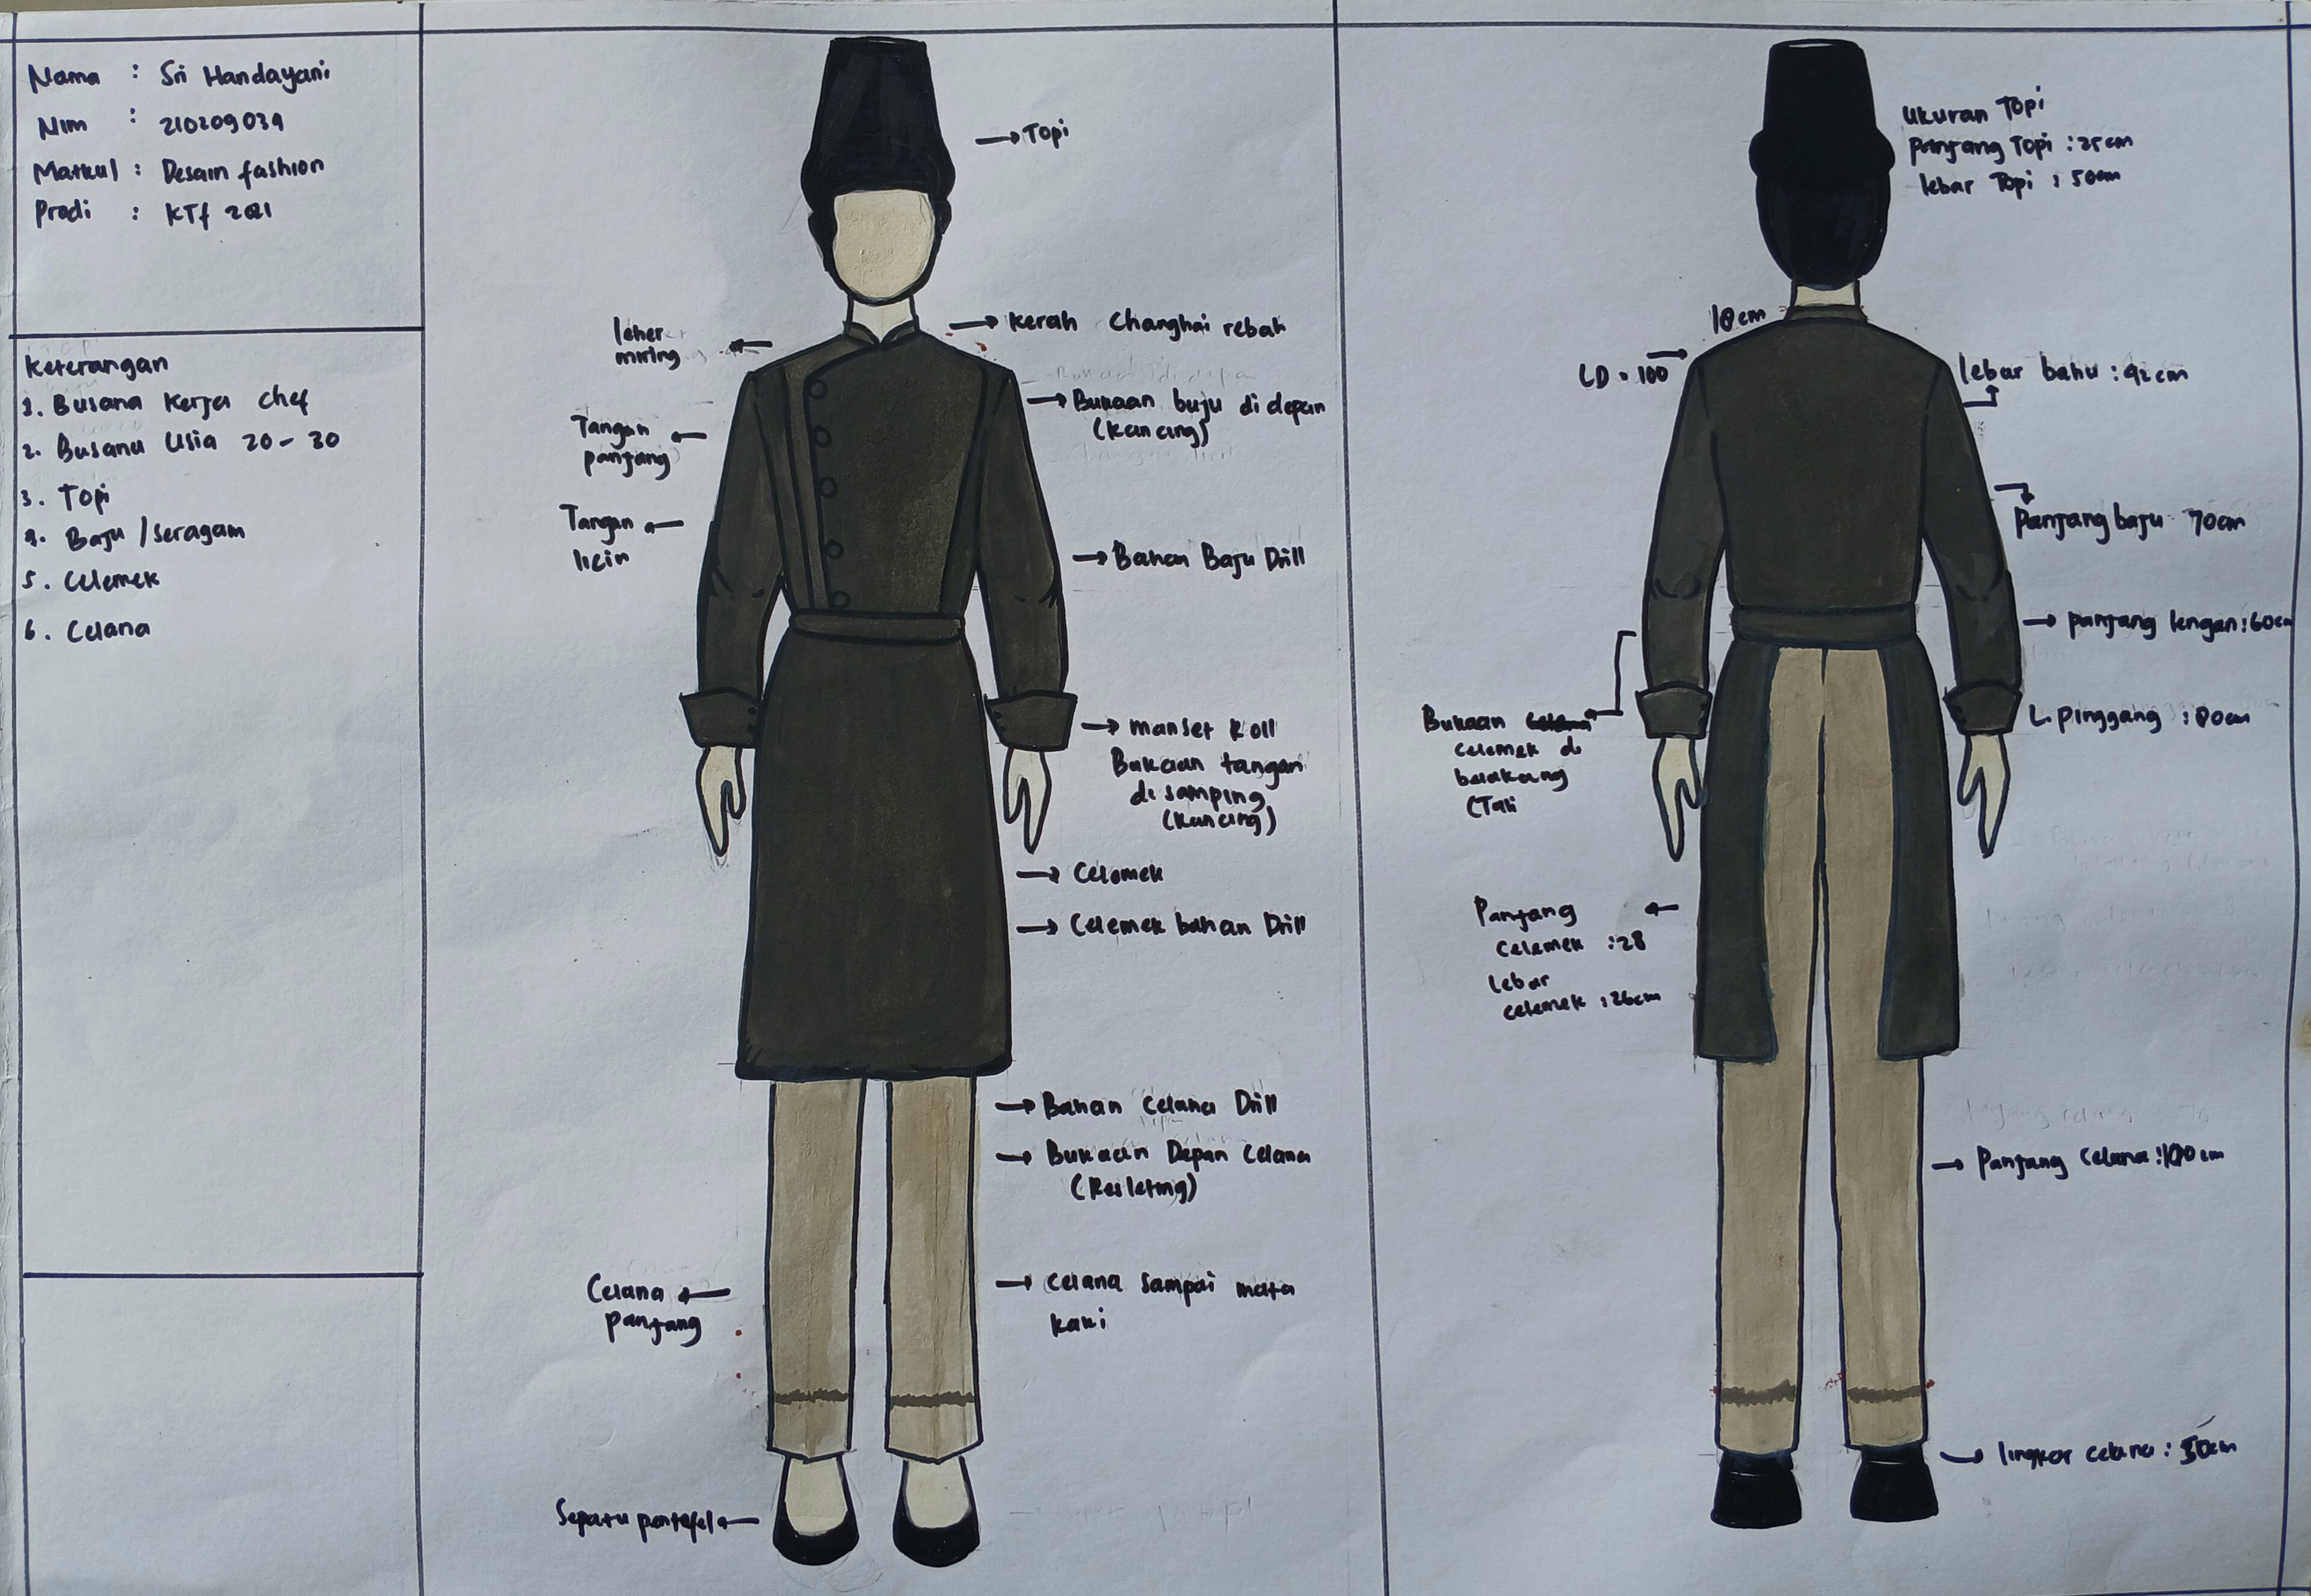 Nama : Sri Handayani
Nim : 210209039
Matkul : Desain fashion
Prodi : KTf 2021
Keterangan
1. Busana Kerja chef
2. Busana Usia 20 - 30
3. Topi
4. Baju /seragam
5. Celemek
6. Celana
→ Topi
leher
miring
→ Kerah Changhai rebah
→ Bukaan baju di depan
(Kancing)
Tangan
panjang
Tangan
licin
→ Bahan Baju Drill
→ manset Roll
Bukaan tangan
di samping
(Kancing)
→ Celemek
→ Celemek bahan Drill
→ Bahan Celana Drill
→ Bukaan Depan Celana
(Resleting)
Celana
panjang
→ Celana Sampai mata
kaki
Sepatu pantofel
Ukuran Topi
panjang Topi : 25cm
lebar Topi : 50cm
10cm
LD = 100
lebar bahu : 42cm
Panjang baju 70cm
→ panjang lengan : 60cm
L. pinggang : 80cm
Bukaan
celemek di
belakang
(Tali
Panjang
celemek : 28
lebar
celemek : 26cm
→ Panjang Celana : 100cm
→ lingkar celana : 50cm